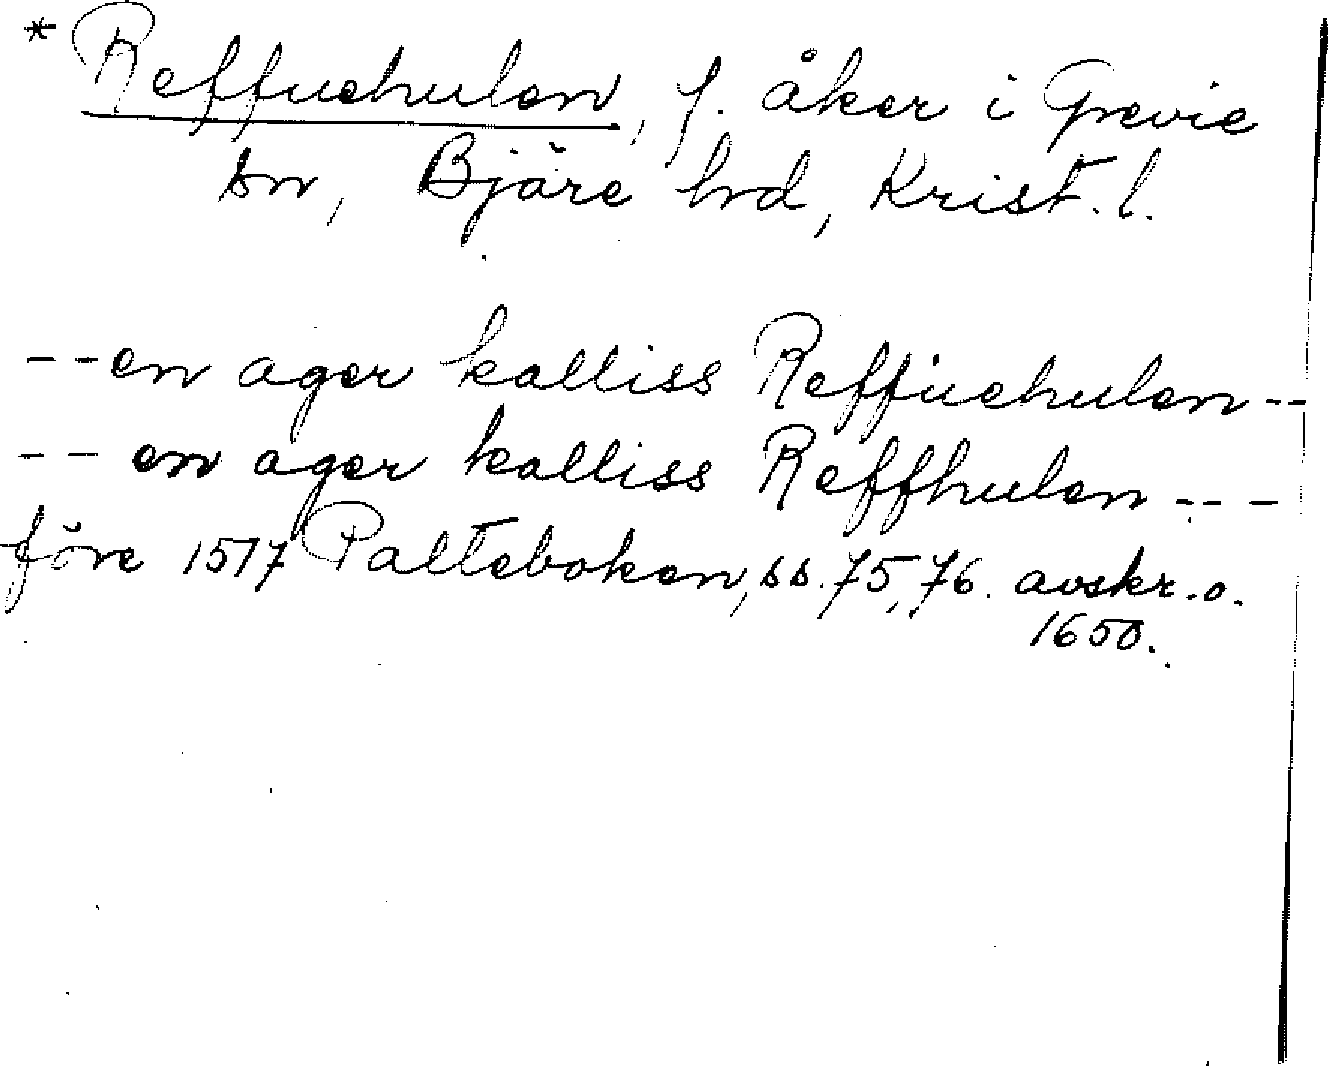 * Reffuehulen, f. åker i Grevie
sn, Bjäre hd, Krist. l.
-- en ager kalliss Reffuehulen --
-- en ager kalliss Reffhulen ---
före 1517 Palteboken, ss. 75, 76. avskr. o.
1650.